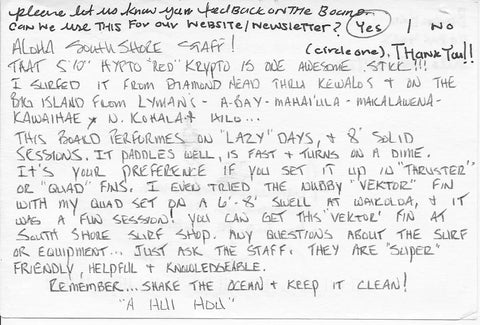 please let us know your feedback on the Board.
CAN WE USE THIS FOR OUR WEBSITE/NEWSLETTER? Yes / No
(circle one). THANK YOU!!
ALOHA SOUTH SHORE STAFF!
THAT 5'10" HYPTO "RED" KRYPTO IS ONE AWESOME STICK!!!
I SURFED IT FROM DIAMOND HEAD THRU KEWALOS & ON THE
BIG ISLAND FROM LYMAN'S - A-BAY - MAHAI'ULA - MAKALAWENA -
KAWAIHAE & N. KOHALA & HILO...
THIS BOARD PERFORMES ON "LAZY" DAYS, & 8' SOLID
SESSIONS. IT PADDLES WELL, IS FAST & TURNS ON A DIME.
IT'S YOUR PREFERENCE IF YOU SET IT UP IN "THRUSTER"
OR "QUAD" FINS. I EVEN TRIED THE NUBBY "VEKTOR" FIN
WITH MY QUAD SET ON A 6'-8' SWELL AT & IT
WAS A FUN SESSION! YOU CAN GET THIS "VEKTOR" FIN AT
SOUTH SHORE SURF SHOP. ANY QUESTIONS ABOUT THE SURF
OR EQUIPMENT... JUST ASK THE STAFF. THEY ARE "SUPER"
FRIENDLY, HELPFUL & KNOWLEDGEABLE.
REMEMBER... SHARE THE OCEAN & KEEP IT CLEAN!
"A HUI HOU"